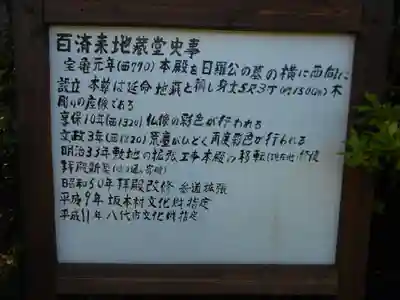 百済来地蔵堂史事
宝亀元年(西790)本殿を日羅公の墓の横に西向に
設立 本尊は延命地蔵と称し身丈5尺3寸(約150cm)木
彫りの座像である
享保10年(西1320)仏像の彩色が行われる
文政3年(西1820)荒廃がひどく再度彩色が行われる
明治33年敷地の拡張工事本殿の移転(現在地)修復
拝殿新築
昭和50年拝殿改修 参道拡張
平成9年 坂本村文化財指定
平成11年 八代市文化財指定